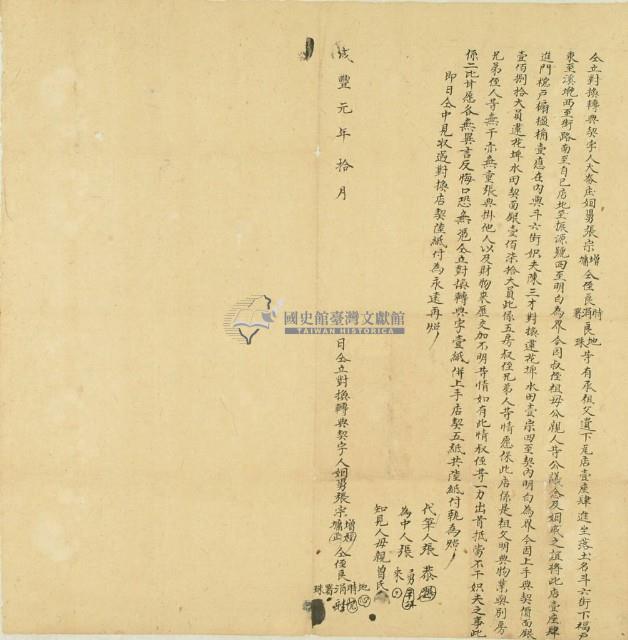 仝立對換轉典契字人大崙庄姻舅張宗增墉仝侄良時消署良地珠等有承祖父遺下瓦店壹座肆進坐落土名斗六街下福戶
東至溪墘西至街路南至自己店地至振源號四至明白為界今因叔侄祖母公親人等公議念及姻戚之誼將此店壹座肆
進門樘戶扇楹桷壹應在內典斗六街姻夫陳三才對換蓮花埤水田壹宗四至契內明白為界今因上手典契價面銀
壹佰捌拾大員蓮花埤水田契面銀壹佰柒拾大員此係五房叔侄兄弟人等情愿保此店係是祖父明典物業與別房
兄弟侄人等無干亦無重張典掛他人以及財物來歷交加不明等情如有此情叔侄等一力出首抵當不干姻夫之事此
係二比甘愿各無異言反悔口恐無憑仝立對換轉典字壹紙併上手店契五紙共陸紙付執為炤
即日仝中見收過對換店契陸紙付為永遠再炤
代筆人張恭
為中人張
知見人母親曾氏
咸豐元年拾月 日仝立對換轉典契字人姻舅張宗增墉仝侄良
國史館臺灣文獻館
TAIWAN HISTORICA